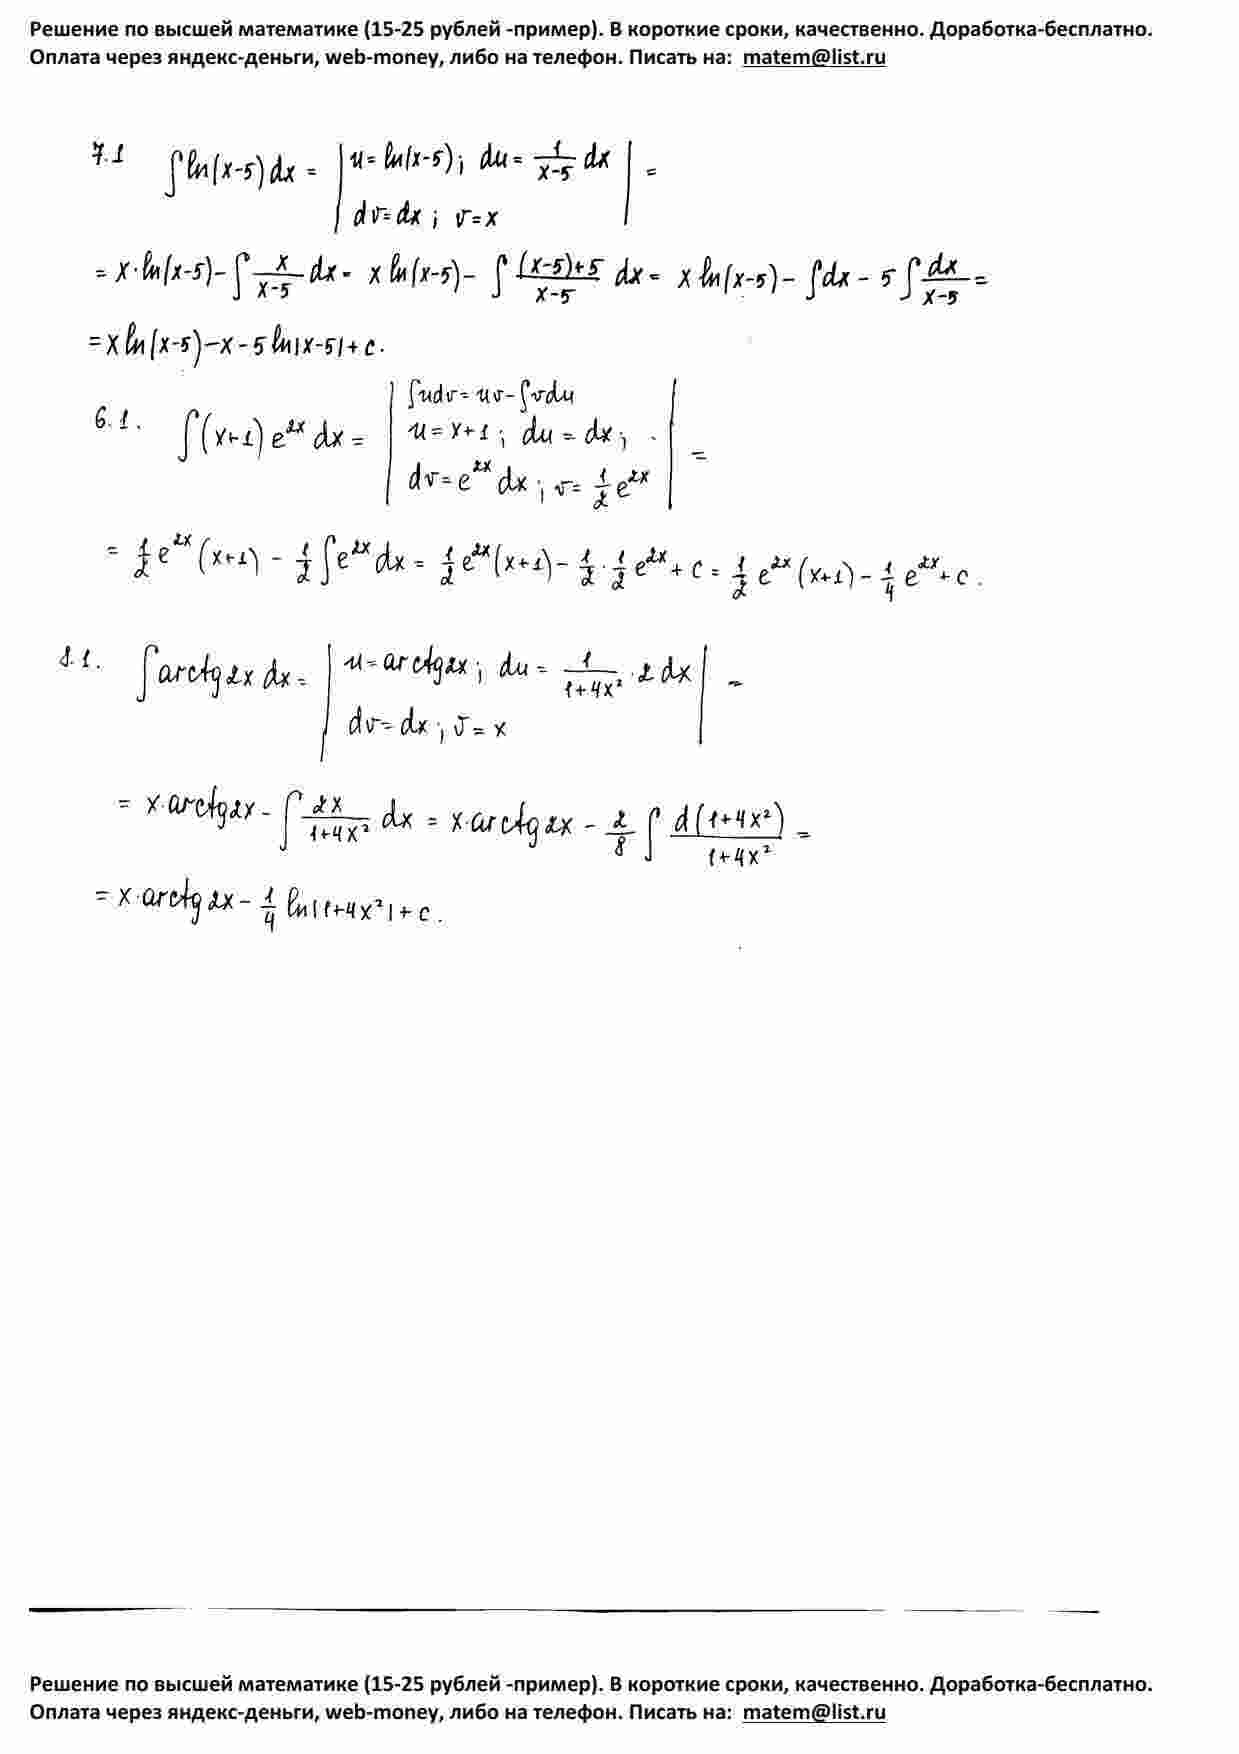 Решение по высшей математике (15-25 рублей -пример). В короткие сроки, качественно. Доработка-бесплатно.
Оплата через яндекс-деньги, web-money, либо на телефон. Писать на: matem@list.ru
7.1 ∫ln(x-5)dx = | u=ln(x-5); du=1/(x-5) dx | =
dv=dx; v=x
= x·ln(x-5)-∫x/(x-5) dx = x ln(x-5)-∫((x-5)+5)/(x-5) dx = x ln(x-5)-∫dx-5∫dx/(x-5) =
= x ln(x-5)-x-5 ln|x-5|+c.
∫udv=uv-∫vdu
6.1. ∫(x+1)e^{2x}dx = | u=x+1; du=dx; | =
dv=e^{2x}dx; v=1/2 e^{2x}
= 1/2 e^{2x}(x+1) - 1/2 ∫e^{2x}dx = 1/2 e^{2x}(x+1) - 1/2 · 1/2 e^{2x} + c = 1/2 e^{2x}(x+1) - 1/4 e^{2x} + c.
8.1. ∫arctg2x dx = | u=arctg2x; du=1/(1+4x²)·2dx | =
dv=dx; v=x
= x·arctg2x - ∫2x/(1+4x²) dx = x·arctg2x - 2/8 ∫d(1+4x²)/(1+4x²) =
= x·arctg2x - 1/4 ln|1+4x²| + c.
Решение по высшей математике (15-25 рублей -пример). В короткие сроки, качественно. Доработка-бесплатно.
Оплата через яндекс-деньги, web-money, либо на телефон. Писать на: matem@list.ru